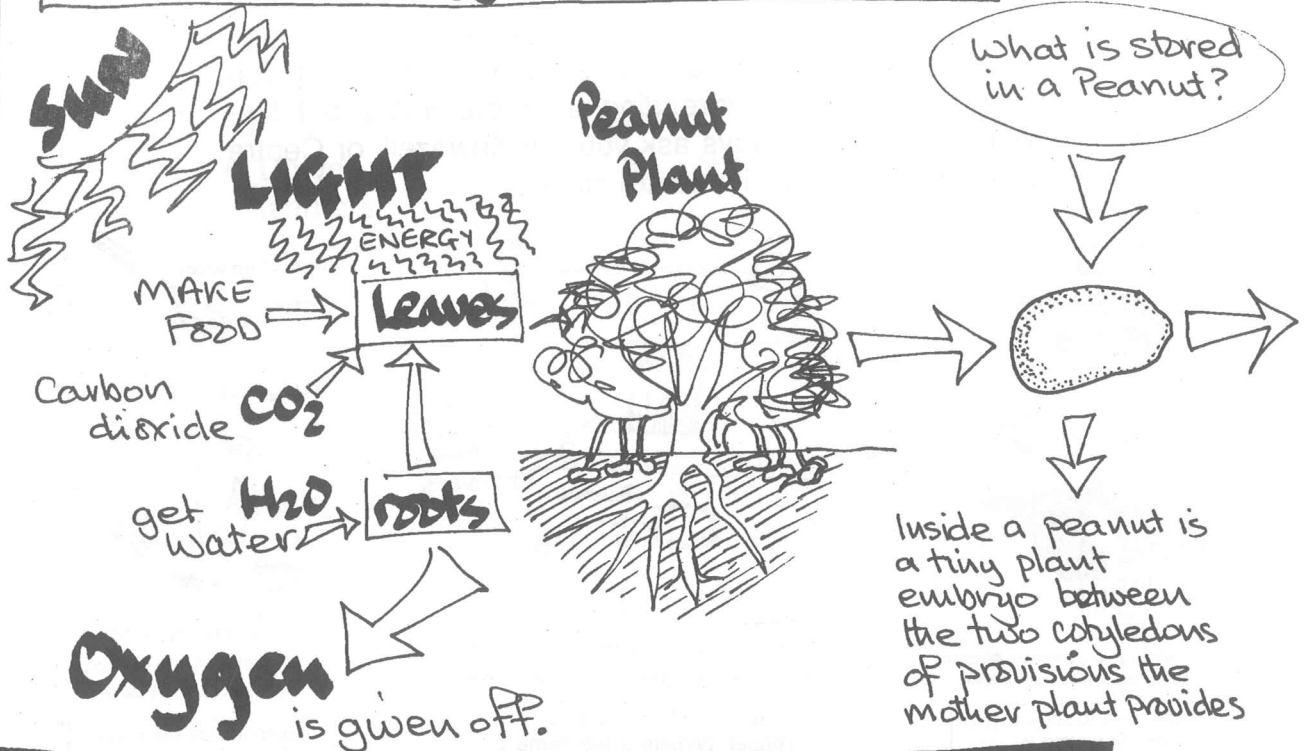 SUN
LIGHT
ENERGY
MAKE
FOOD
Leaves
Carbon
dioxide CO2
get H2O
water
roots
Oxygen
is given off.
Peanut
Plant
What is stored
in a Peanut?
Inside a peanut is
a tiny plant
embryo between
the two cotyledons
of provisions the
mother plant provides